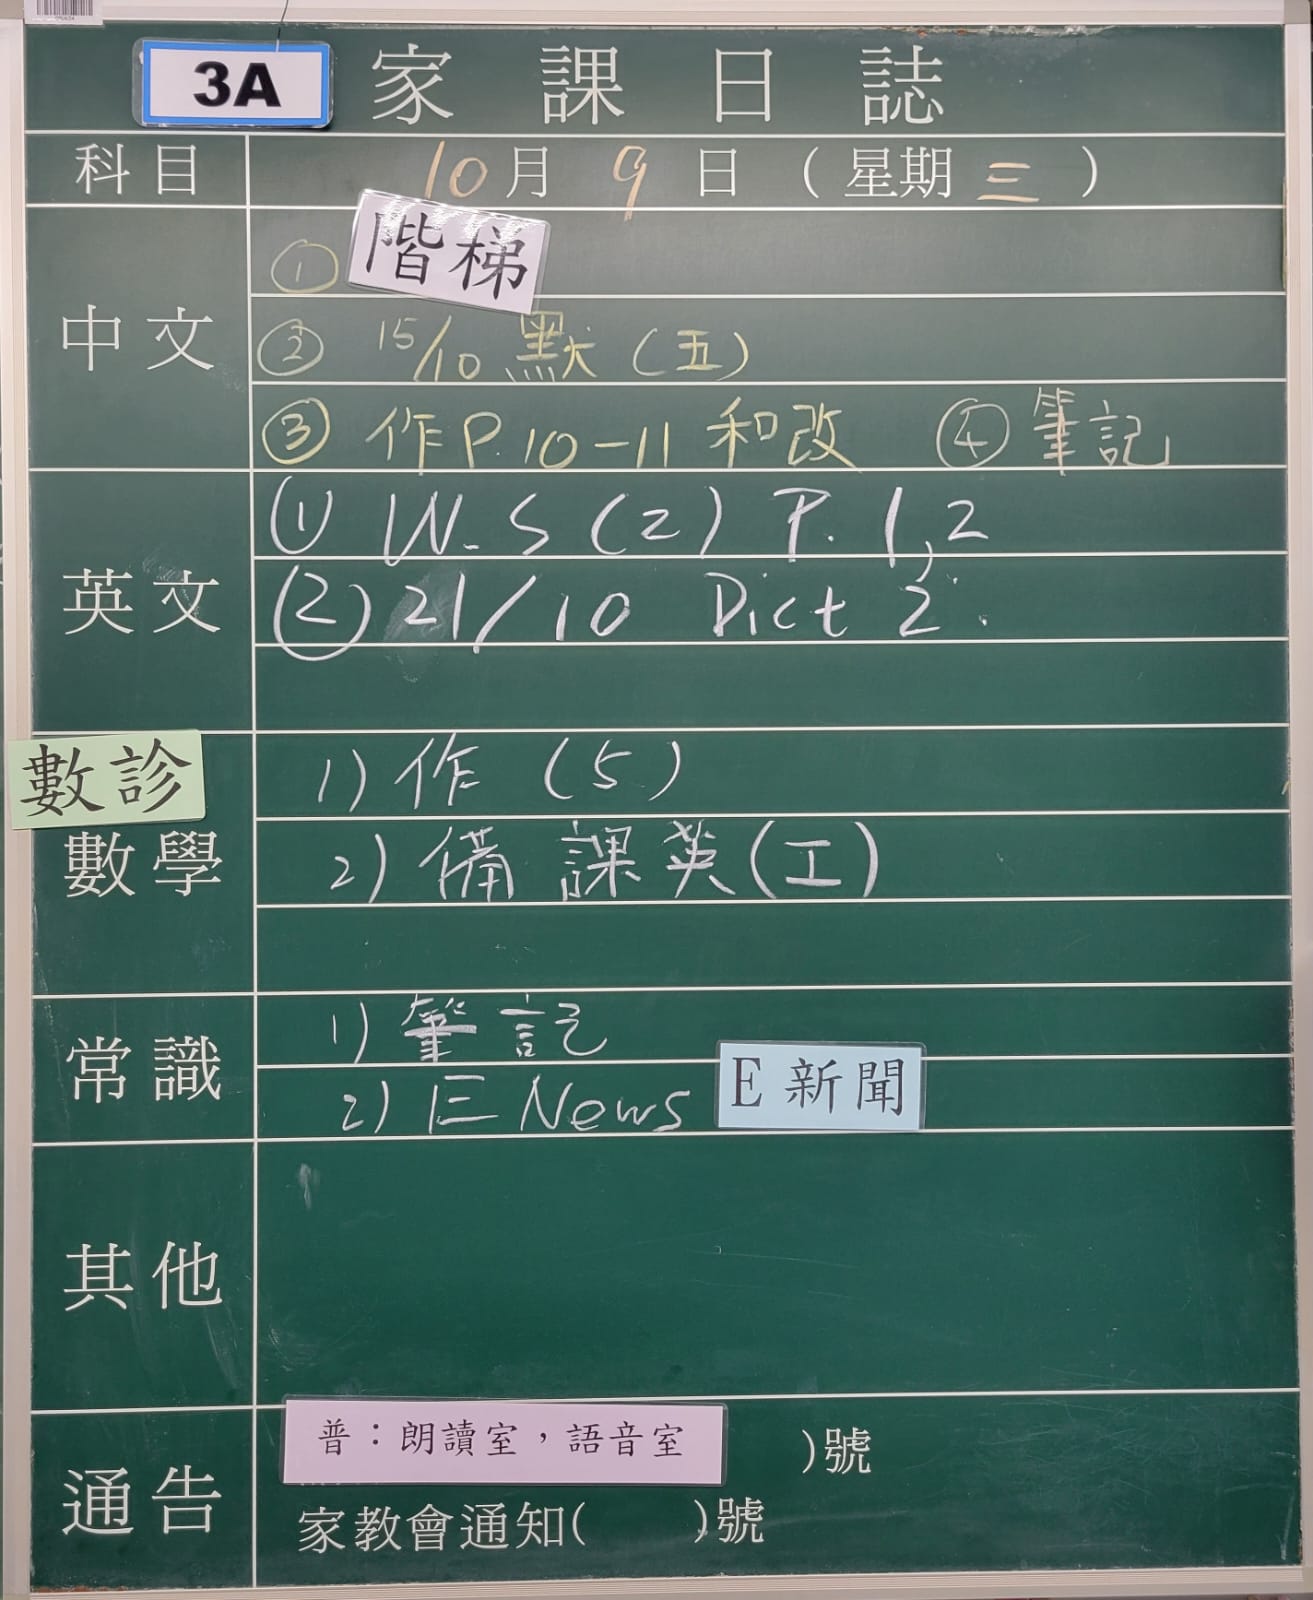 3A 家課日誌
科目 10月9日(星期三)
中文
① 階梯
② 15/10 默(五)
③ 作P.10-11 和改 ④ 筆記
英文
(1) W.S (2) P.1,2
(2) 21/10 Dict 2.
數診
數學
1) 作 (5)
2) 備課英(工)
常識
1) 筆記
2) E News E新聞
其他
通告
普：朗讀室，語音室 )號
家教會通知( )號